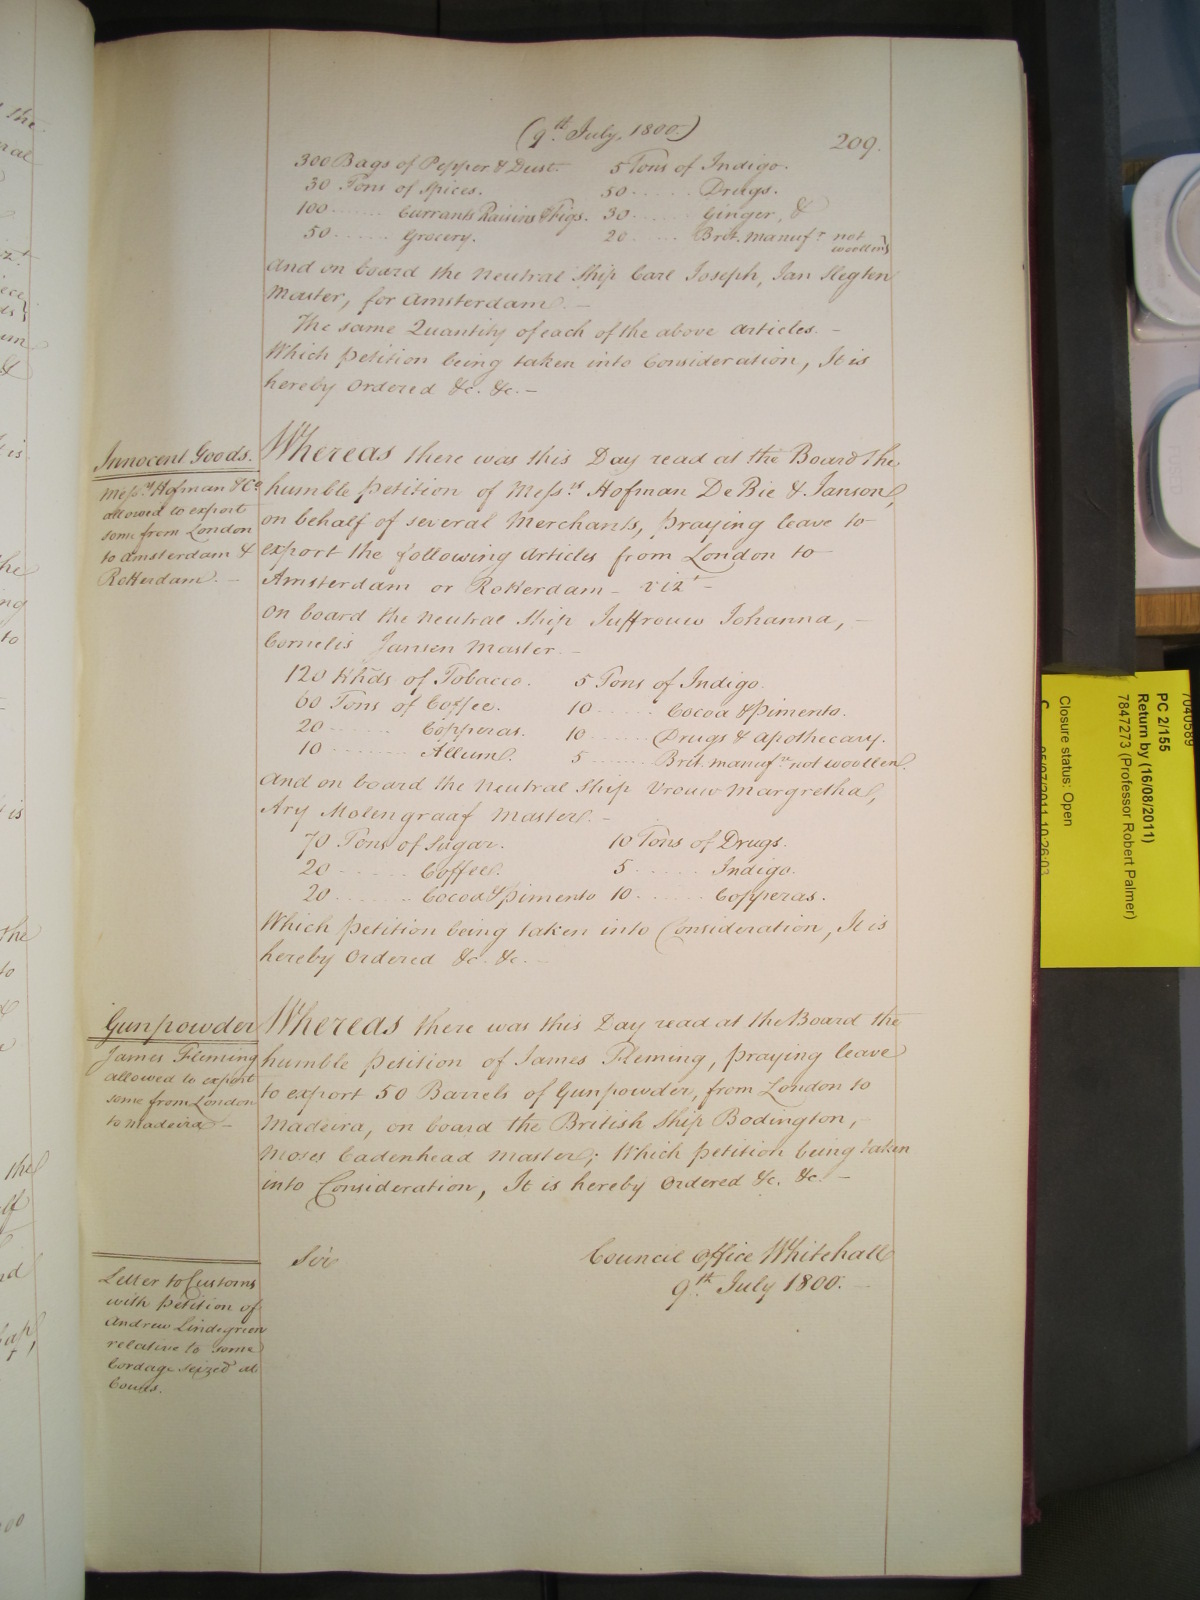 (9th July, 1800.)
209.
300 Bags of Pepper & Dust. 5 Tons of Indigo.
30 Tons of Spices. 50 ...... Drugs.
100 ....... Currants Raisins & Figs. 30 ...... Ginger, &
50 ...... Grocery. 20 ...... Brit. Manufrs not woollen}
And on board the Neutral Ship Carl Joseph, Jan Slegten
Master, for Amsterdam. -
The same Quantity of each of the above Articles. -
Which Petition being taken into Consideration, It is
hereby Ordered &c. &c. -
Innocent Goods.
Messrs Hofman & Co
allowed to export
some from London
to Amsterdam &
Rotterdam. -
Whereas there was this Day read at the Board the
humble Petition of Messrs Hofman De Bie & Janson,
on behalf of several Merchants, praying leave to
export the following Articles from London to
Amsterdam or Rotterdam - vizt -
On board the Neutral Ship Juffrouw Johanna, -
Cornelis Jansen Master. -
120 Hhds of Tobacco. 5 Tons of Indigo.
60 Tons of Coffee. 10 ...... Cocoa & Pimento.
20 ....... Copperas. 10 ...... Drugs & Apothecary.
10 ........ Allum. 5 ...... Brit. Manufrs not woollen.
And on board the Neutral Ship Vrouw Margretha,
Ary Molengraaf Master. -
70 Tons of Sugar. 10 Tons of Drugs.
20 ........ Coffee. 5 ...... Indigo.
20 ........ Cocoa & Pimento 10 ...... Copperas.
Which Petition being taken into Consideration, It is
hereby Ordered &c. &c. -
Gunpowder
James Fleming
allowed to export
some from London
to Madeira -
Whereas there was this Day read at the Board the
humble Petition of James Fleming, praying leave
to export 50 Barrels of Gunpowder, from London to
Madeira, on board the British Ship Bodington, -
Moses Cadenhead Master; Which Petition being taken
into Consideration, It is hereby Ordered &c. &c. -
Letter to Customs
with Petition of
Andrew Lindegrien
relative to some
Cordage seized at
Cowes.
Sir
Council Office Whitehall
9th July 1800. -
7040589
PC 2/155
Return by (16/08/2011)
7847273 (Professor Robert Palmer)
Closure status: Open
05/07/2011 10:26:03